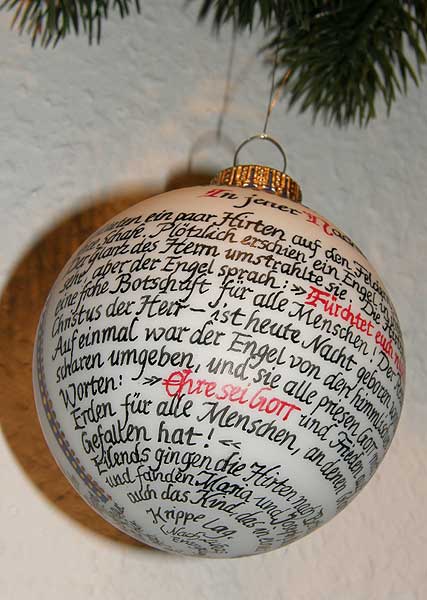 In jener Nach
ein paar Hirten auf den Feld
Schafe. Plötzlich erschien ein Engel
Der Glanz des Herrn umstrahlte sie. Die
sehr, aber der Engel sprach: »Fürchtet euch
eine frohe Botschaft für alle Menschen! Der
Christus der Herr – ist heute Nacht geboren
Auf einmal war der Engel von den himmlisch
scharen umgeben, und sie alle priesen Gott
Worten: »Ehre sei Gott und Frieden
Erden für alle Menschen, an denen
Gefallen hat!«
Eilends gingen die Hirten nach
und fanden Maria und
auch das Kind, das in
Krippe lag.
(Nach